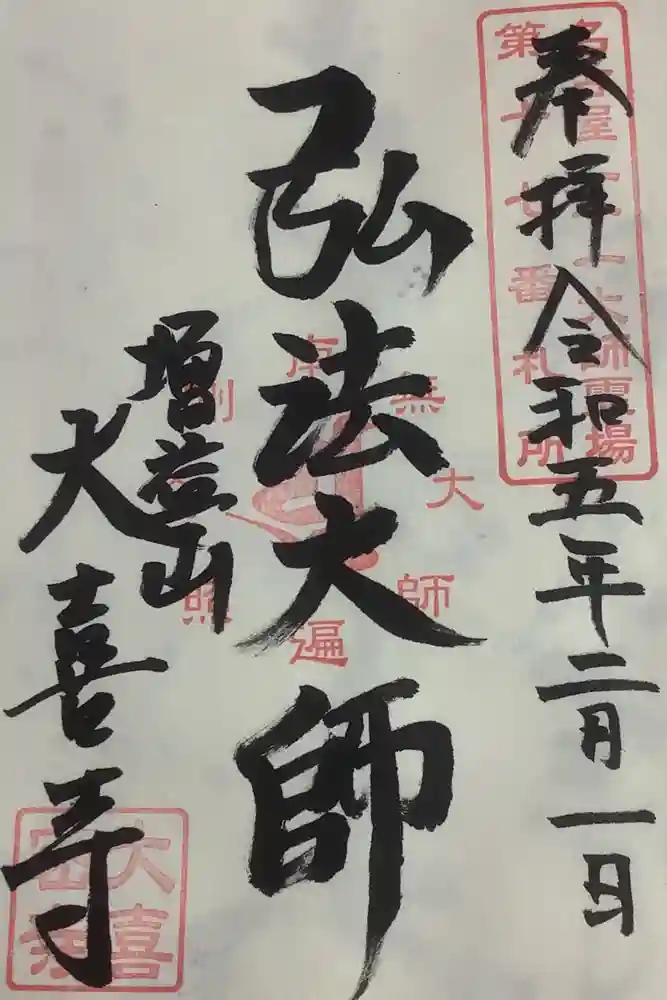 奉拝令和五年二月一日
弘法大師
増益山
大喜寺
名古屋二十一大師霊場
番札所
南無大師遍照
大喜